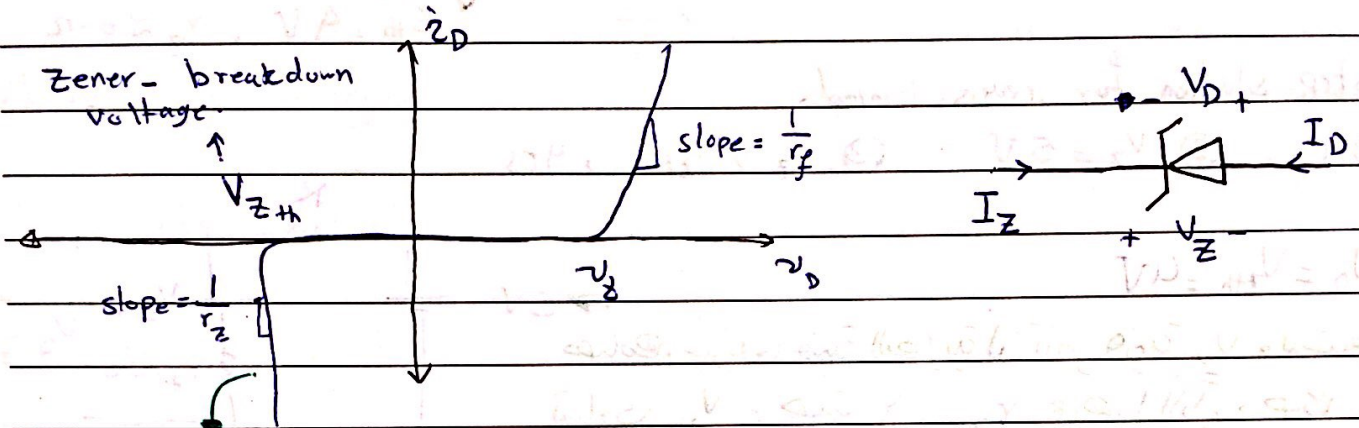 i_D
Zener - breakdown
voltage.
↑
V_Z_th
slope = 1/r_f
slope = 1/r_z
v_γ
v_D
- V_D +
I_D
I_Z
+ V_Z -